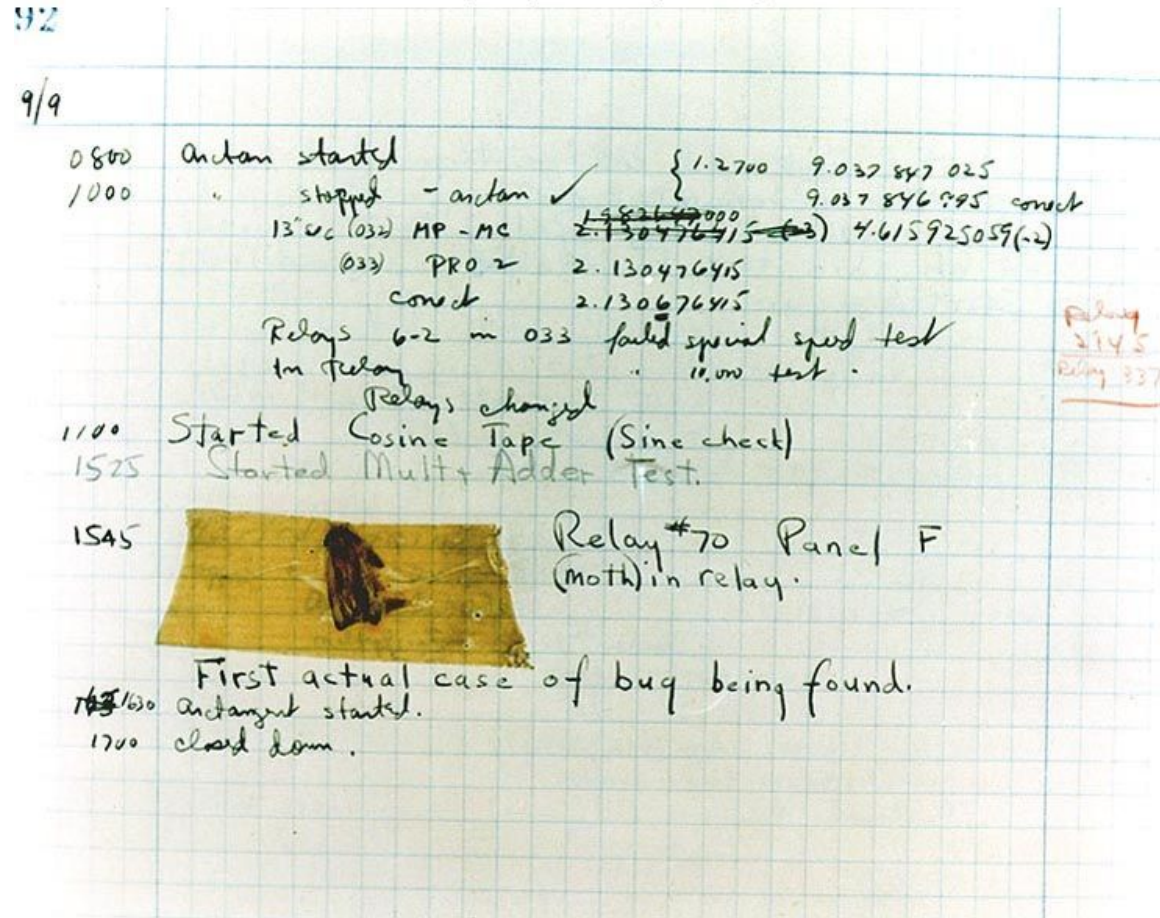 92
9/9
0800 arctan started { 1.2700 9.037 847 025
1000 " stopped - arctan ✓ 9.037 846 995 correct
13"uc (032) MP - MC 2.130476415 (-3) 4.615925059(-2)
(033) PRO 2 2.130476415
correct 2.130676415
Relays 6-2 in 033 failed special speed test
In Relay " 10,000 test.
Relay
2145
Relay 337
Relays changed
1100 Started Cosine Tape (Sine check)
1525 Started Mult+ Adder Test.
1545 Relay #70 Panel F
(moth) in relay.
First actual case of bug being found.
1630 arctangent started.
1700 closed down.